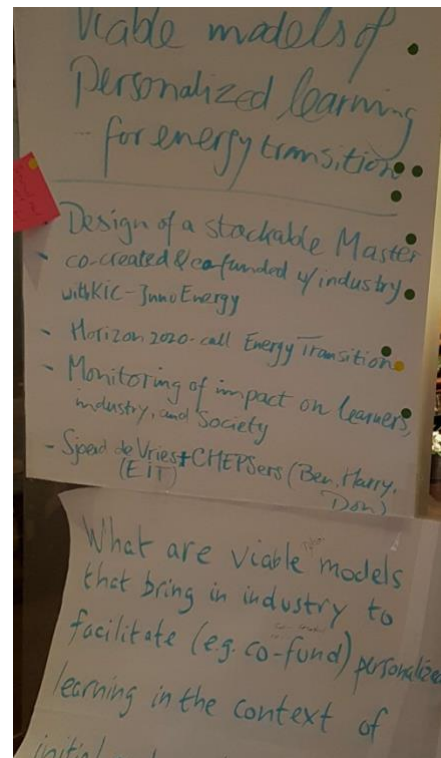 Viable models of
Personalized learning
- for energy transition
Design of a stackable Master
- co-created & co-funded w/ industry
with KIC-InnoEnergy
- Horizon 2020-call Energy Transition
- Monitoring of impact on learners,
industry, and Society
- Sjoerd de Vries + CHEPSers (Ben, Harry,
(EIT) Don)
What are viable models
that bring in industry to
facilitate (e.g. co-fund) personalized
learning in the context of
initial